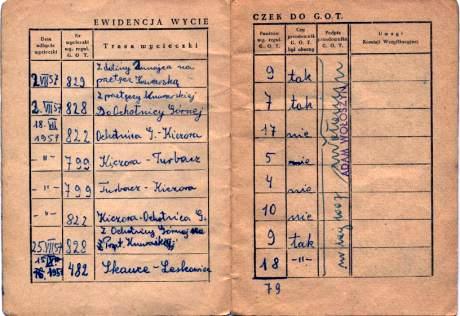 EWIDENCJA WYCIE
CZEK DO G.O.T.
Data odbycia wycieczki
Nr wycieczki wg. regul. G. O. T.
Trasa wycieczki
Punktów wg. regul. G. O. T.
Czy przodownik był obecny
Podpis przodownika G. O. T.
Uwagi
Komisji Weryfikacyjnej
2.VII 57 829 Z doliny Dunajca na
przełęcz Knurowską 9 tak
2. VII 57 828 Z przełęczy Knurowskiej
Do Ochotnicy Górnej 7 tak
18. VII
1957 822 Ochotnica G.-Kiczora 17 nie
-"- 799 Kiczora - Turbacz 5 nie
-"- 799 Turbacz - Kiczora 4 nie
-"- 822 Kiczora-Ochotnica G. 10 nie
25.VII 57 828 Z Ochotnicy Górnej na
Przeł. Knurowską 9 tak
1957 482 18 -"-
ADAM WOŁOSZYN
79